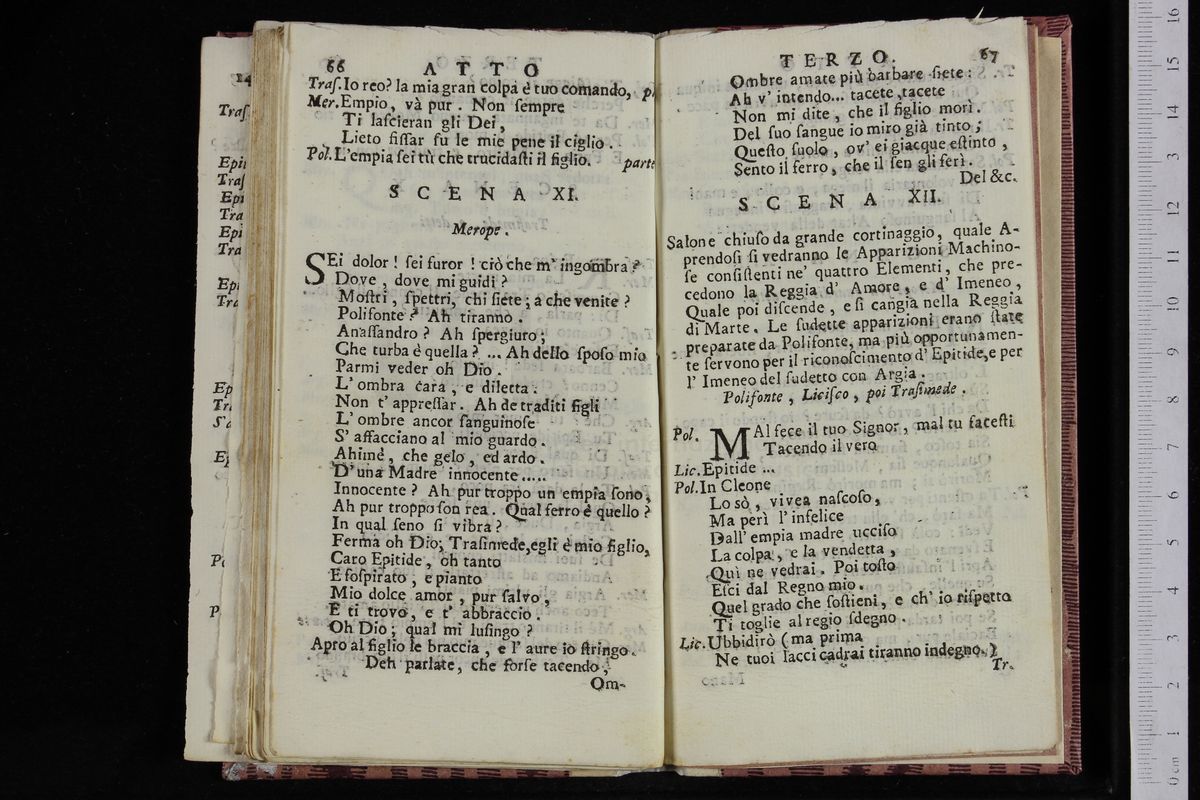 66 ATTO
Traſ. Io reo? la mia gran colpa è tuo comando,
Mer. Empio, và pur. Non ſempre
Ti laſcieran gli Dei,
Lieto fiſſar ſu le mie pene il ciglio.
Pol. L'empia ſei tù che trucidaſti il figlio. parte
SCENA XI.
Merope.
SEi dolor! ſei furor! ciò che m'ingombra?
Dove, dove mi guidi?
Moſtri, ſpettri, chi ſiete; a che venite?
Polifonte? Ah tiranno.
Anaſſandro? Ah ſpergiuro;
Che turba è quella? ... Ah dello ſpoſo mio
Parmi veder oh Dio.
L'ombra cara, e diletta.
Non t'appreſſar. Ah de traditi figli
L'ombre ancor ſanguinoſe
S'affacciano al mio guardo.
Ahimè, che gelo, ed ardo.
D'una Madre innocente.....
Innocente? Ah pur troppo un empia ſono,
Ah pur troppo ſon rea. Qual ferro è quello?
In qual ſeno ſi vibra?
Ferma oh Dio; Traſimede, egli è mio figlio,
Caro Epitide, oh tanto
E ſoſpirato, e pianto
Mio dolce amor, pur ſalvo,
E ti trovo, e t'abbraccio.
Oh Dio; qual mi luſingo?
Apro al figlio le braccia, e l'aure io ſtringo.
Deh parlate, che forſe tacendo,
Om-
TERZO. 67
Ombre amate più barbare ſiete:
Ah v'intendo... tacete, tacete
Non mi dite, che il figlio morì.
Del ſuo ſangue io miro già tinto;
Queſto ſuolo, ov'ei giacque eſtinto,
Sento il ferro, che il ſen gli ferì.
Del &c.
SCENA XII.
Salone chiuſo da grande cortinaggio, quale A-
prendoſi ſi vedranno le Apparizioni Machino-
ſe conſiſtenti ne' quattro Elementi, che pre-
cedono la Reggia d'Amore, e d'Imeneo,
Quale poi diſcende, e ſi cangia nella Reggia
di Marte. Le ſudette apparizioni erano ſtate
preparate da Polifonte, ma più opportunamen-
te ſervono per il riconoſcimento d'Epitide, e per
l'Imeneo del ſudetto con Argia.
Polifonte, Liciſco, poi Traſimede.
Pol. MAl fece il tuo Signor, mal tu faceſti
Tacendo il vero
Lic. Epitide ...
Pol. In Cleone
Lo sò, vivea naſcoſo,
Ma perì l'infelice
Dall'empia madre ucciſo
La colpa, e la vendetta,
Quì ne vedrai. Poi toſto
Eſci dal Regno mio.
Quel grado che ſoſtieni, e ch'io riſpetto
Ti toglie al regio ſdegno.
Lic. Ubbidirò (ma prima
Ne tuoi lacci cadrai tiranno indegno.)
Tr.